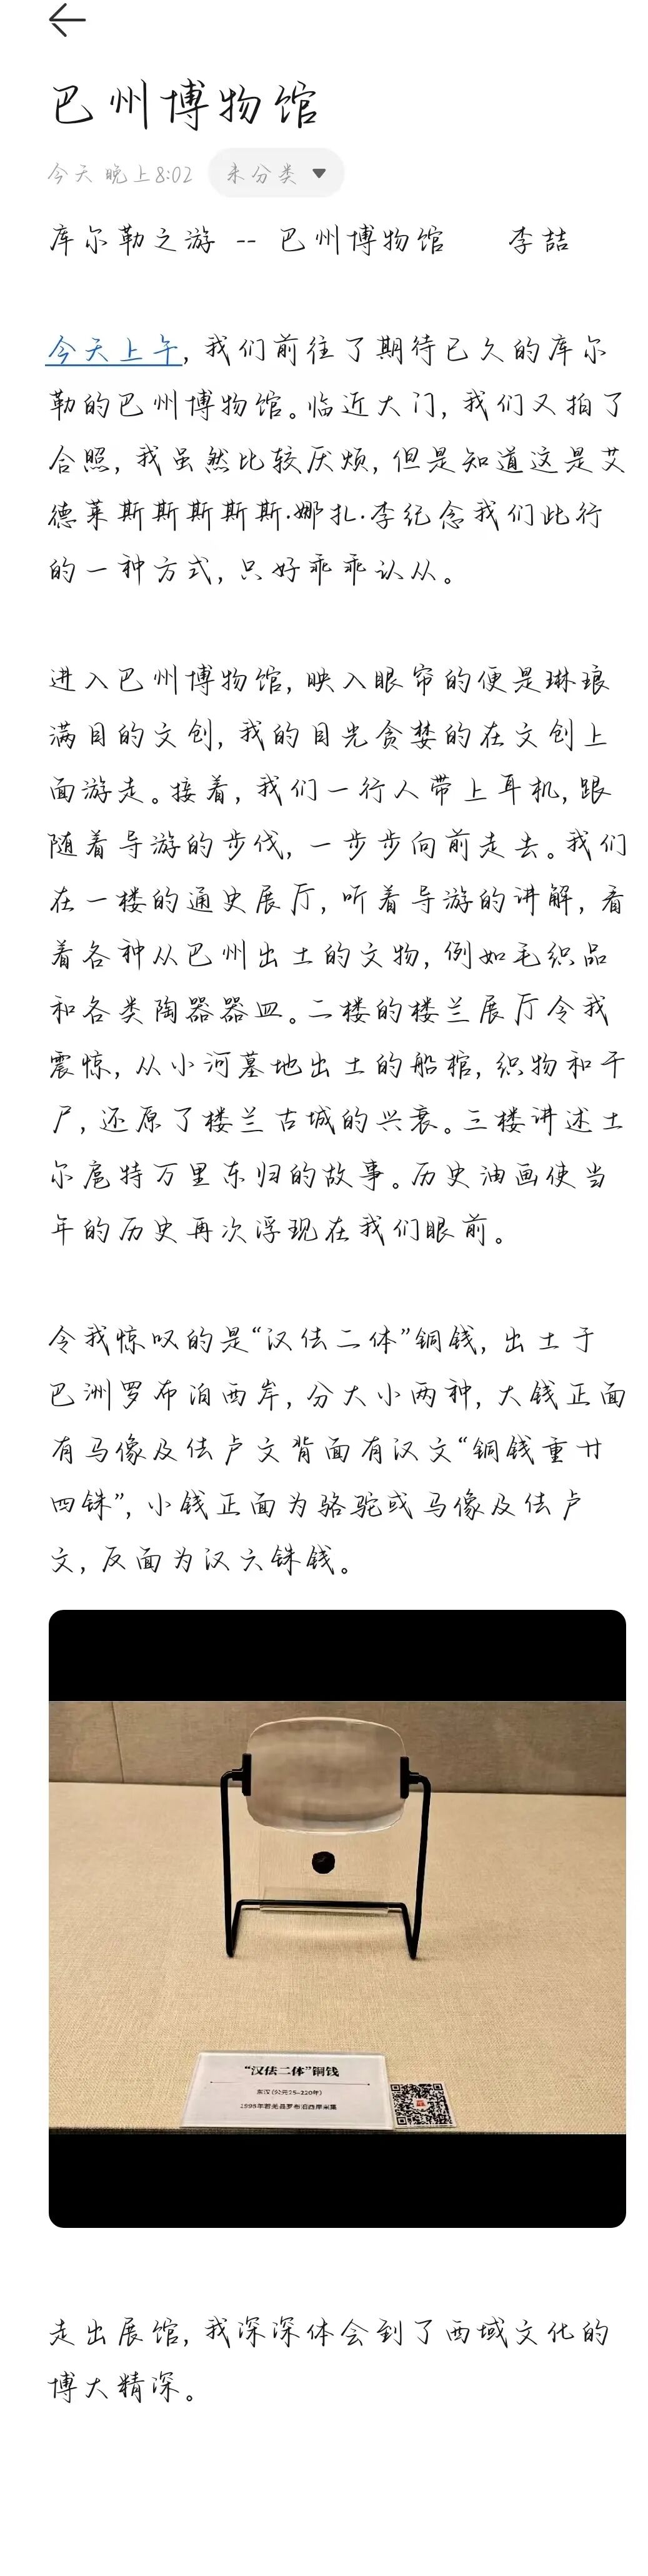 巴州博物馆
今天 晚上8:02 未分类
库尔勒之游 -- 巴州博物馆 李喆
今天上午, 我们前往了期待已久的库尔
勒的巴州博物馆。临近大门, 我们又拍了
合照, 我虽然比较厌烦, 但是知道这是艾
德莱斯斯斯斯斯·娜扎·李纪念我们此行
的一种方式, 只好乖乖认从。
进入巴州博物馆, 映入眼帘的便是琳琅
满目的文创, 我的目光贪婪的在文创上
面游走。接着, 我们一行人带上耳机, 跟
随着导游的步伐, 一步步向前走去。我们
在一楼的通史展厅, 听着导游的讲解, 看
着各种从巴州出土的文物, 例如毛织品
和各类陶器器皿。二楼的楼兰展厅令我
震惊, 从小河墓地出土的船棺, 织物和干
尸, 还原了楼兰古城的兴衰。三楼讲述土
尔扈特万里东归的故事。历史油画使当
年的历史再次浮现在我们眼前。
令我惊叹的是“汉佉二体”铜钱, 出土于
巴洲罗布泊西岸, 分大小两种, 大钱正面
有马像及佉卢文背面有汉文“铜钱重廿
四铢”, 小钱正面为骆驼或马像及佉卢
文, 反面为汉六铢钱。
“汉佉二体”铜钱
东汉 (公元25-220年)
1998年若羌县罗布泊西岸采集
走出展馆, 我深深体会到了西域文化的
博大精深。